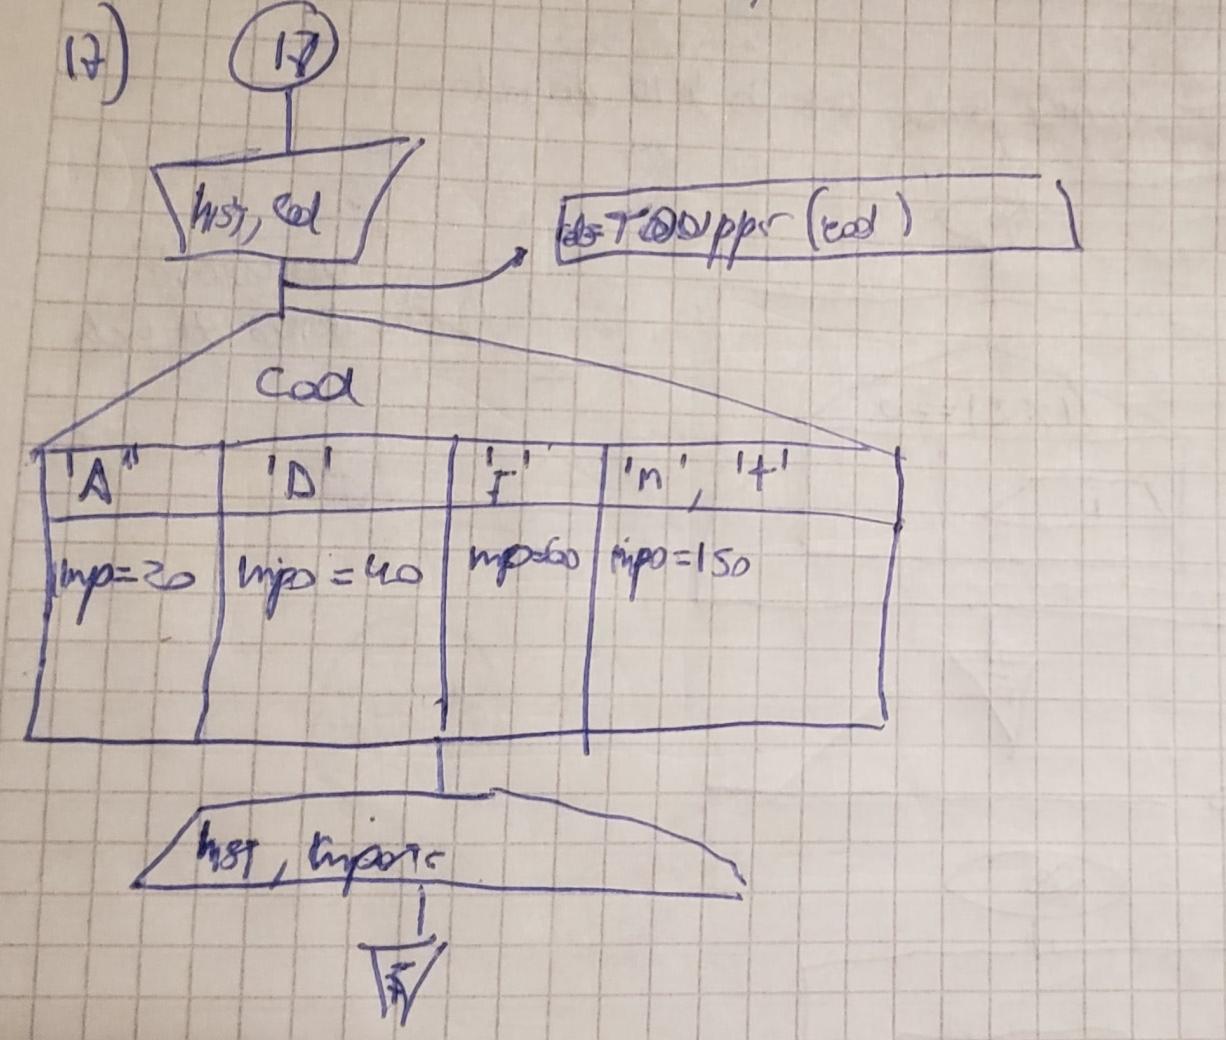 17)
17
hist, cod
cod=TOOUpper(cod)
Cod
'A" 'D' 'I' 'm', 't'
imp=20 impo=40 imp=60 impo=150
hist, importe
F